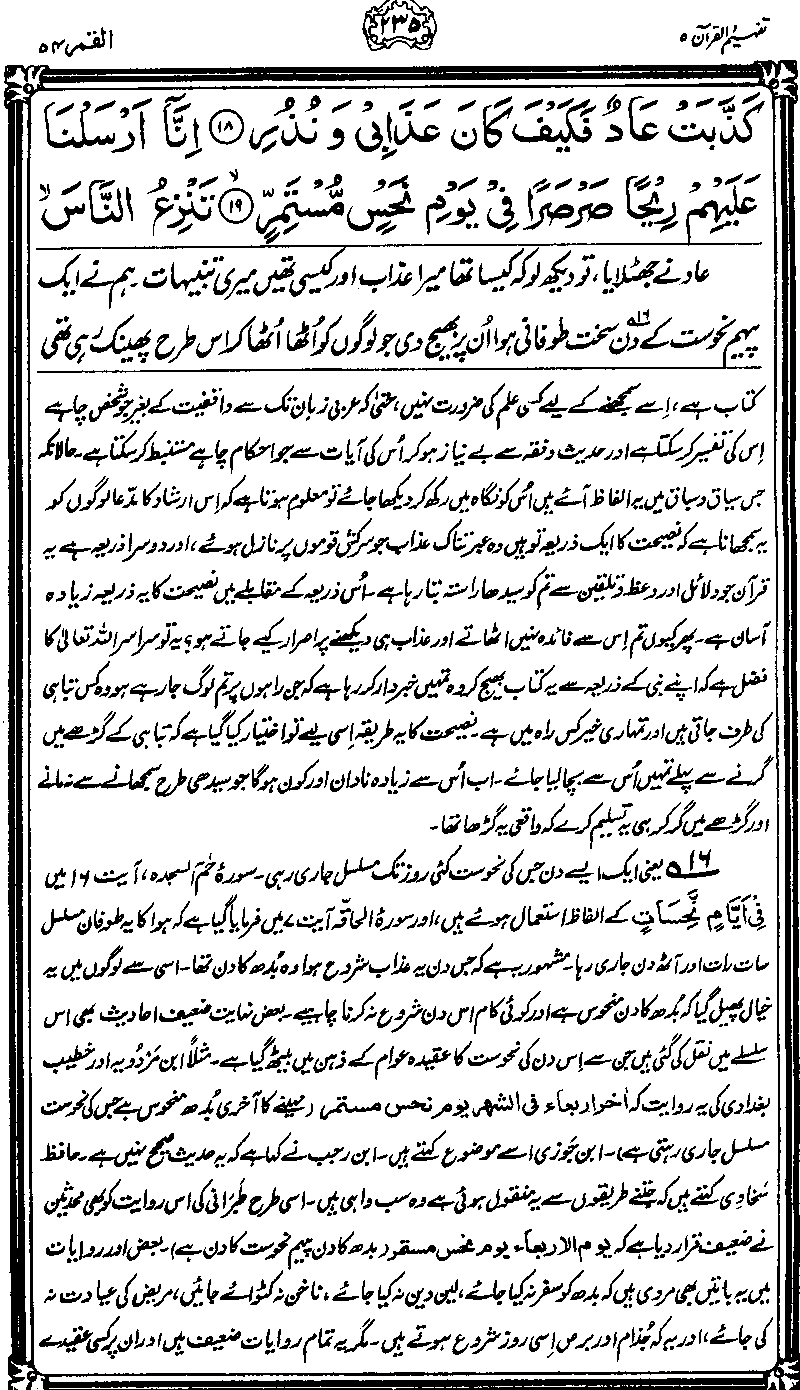 تفہیم القرآن ۵
۲۳۵
القمر ۵۴
كَذَّبَتْ عَادٌ فَكَيْفَ كَانَ عَذَابِيْ وَ نُذُرِ ۝۱۸ اِنَّاۤ اَرْسَلْنَا
عَلَيْهِمْ رِيْحًا صَرْصَرًا فِيْ يَوْمِ نَحْسٍ مُّسْتَمِرٍّ ۝۱۹ۙ تَنْزِعُ النَّاسَ ۙ
عاد نے جھٹلایا، تو دیکھ لو کہ کیسا تھا میرا عذاب اور کیسی تھیں میری تنبیہات۔ ہم نے ایک
پیہم نحوست کے دن۱۶ سخت طوفانی ہوا اُن پر بھیج دی جو لوگوں کو اُٹھا اُٹھا کر اس طرح پھینک رہی تھی
کتاب ہے، اِسے سمجھنے کے لیے کسی علم کی ضرورت نہیں، حتیٰ کہ عربی زبان تک سے واقفیت کے بغیر جو شخص چاہے
اِس کی تفسیر کر سکتا ہے اور حدیث و فقہ سے بے نیاز ہو کر اُس کی آیات سے جو احکام چاہے مستنبط کر سکتا ہے۔ حالانکہ
جس سیاق و سباق میں یہ الفاظ آئے ہیں اُس کو نگاہ میں رکھ کر دیکھا جائے تو معلوم ہوتا ہے کہ اِس ارشاد کا مدّعا لوگوں کو
یہ سمجھانا ہے کہ نصیحت کا ایک ذریعہ تو ہیں وہ عبرتناک عذاب جو سرکش قوموں پر نازل ہوئے، اور دوسرا ذریعہ ہے یہ
قرآن جو دلائل اور وعظ و تلقین سے تم کو سیدھا راستہ بتا رہا ہے۔ اُس ذریعہ کے مقابلے میں نصیحت کا یہ ذریعہ زیادہ
آسان ہے۔ پھر کیوں تم اِس سے فائدہ نہیں اٹھاتے اور عذاب ہی دیکھنے پر اصرار کیے جاتے ہو؟ یہ تو سراسر اللہ تعالیٰ کا
فضل ہے کہ اپنے نبی کے ذریعہ سے یہ کتاب بھیج کر وہ تمہیں خبردار کر رہا ہے کہ جن راہوں پر تم لوگ جا رہے ہو وہ کس تباہی
کی طرف جاتی ہیں اور تمہاری خیر کس راہ میں ہے۔ نصیحت کا یہ طریقہ اِسی لیے تو اختیار کیا گیا ہے کہ تباہی کے گڑھے میں
گرنے سے پہلے تمہیں اُس سے بچا لیا جائے۔ اب اُس سے زیادہ نادان اور کون ہوگا جو سیدھی طرح سمجھانے سے نہ مانے
اور گڑھے میں گر کر ہی یہ تسلیم کرے کہ واقعی یہ گڑھا تھا۔
۱۶ یعنی ایک ایسے دن جس کی نحوست کئی روز تک مسلسل جاری رہی۔ سورۂ حٰم السجدہ، آیت ۱۶ میں
فِیْ اَيَّامٍ نَّحِسَاتٍ کے الفاظ استعمال ہوئے ہیں، اور سورۂ الحاقہ آیت ۷ میں فرمایا گیا ہے کہ ہوا کا یہ طوفان مسلسل
سات رات اور آٹھ دن جاری رہا۔ مشہور یہ ہے کہ جس دن یہ عذاب شروع ہوا وہ بُدھ کا دن تھا۔ اسی سے لوگوں میں یہ
خیال پھیل گیا کہ بُدھ کا دن منحوس ہے اور کوئی کام اس دن شروع نہ کرنا چاہیے۔ بعض نہایت ضعیف احادیث بھی اس
سلسلے میں نقل کی گئی ہیں جن سے اِس دن کی نحوست کا عقیدہ عوام کے ذہن میں بیٹھ گیا ہے۔ مثلاً ابن مَرْدُوْیہ اور خطیب
بغدادی کی یہ روایت کہ اٰخر اربعاء فی الشھر یوم نحس مستمر (مہینے کا آخری بُدھ منحوس ہے جس کی نحوست
مسلسل جاری رہتی ہے)۔ ابن جَوزی اسے موضوع کہتے ہیں۔ ابن رجب نے کہا ہے کہ یہ حدیث صحیح نہیں ہے۔ حافظ
سَخاوی کہتے ہیں کہ جتنے طریقوں سے یہ منقول ہوئی ہے وہ سب واہی ہیں۔ اسی طرح طَبَرانی کی اس روایت کو بھی محدثین
نے ضعیف قرار دیا ہے کہ یوم الاربعاء یوم نحس مستمر (بدھ کا دن پیہم نحوست کا دن ہے)۔ بعض اور روایات
میں یہ باتیں بھی مروی ہیں کہ بدھ کو سفر نہ کیا جائے، لین دین نہ کیا جائے، ناخن نہ کٹوائے جائیں، مریض کی عیادت نہ
کی جائے، اور یہ کہ جُذام اور برص اِسی روز شروع ہوتے ہیں۔ مگر یہ تمام روایات ضعیف ہیں اور ان پر کسی عقیدے